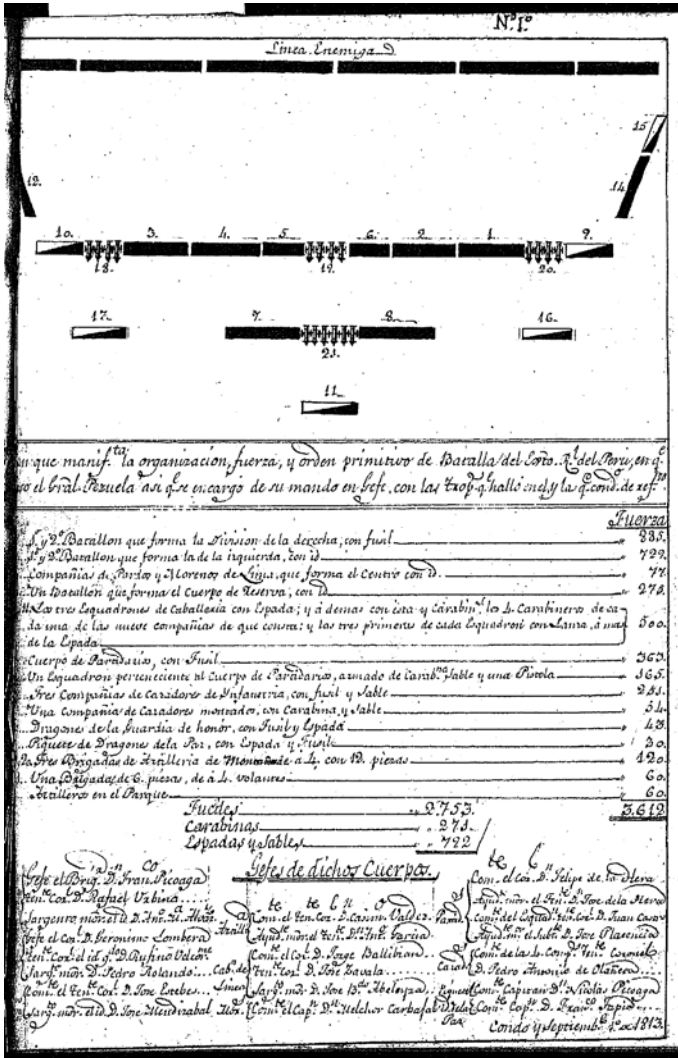 N.º 1.º
Linea Enemiga
15.
12.
14.
10. 3. 4. 5. 6. 2. 1. 9.
18. 19. 20.
17. 7. 8. 16.
21.
11.
n que manif.ta la organizacion, fuerza, y orden primitivo de Batalla del Exto. R.l del Peru, en q.e
so el Gral. Pezuela asi q.e se encargó de su mando en Gefe, con las trop.s q.e halló en el, y la q.e cond. de ref.zo
Fuerza
1.º y 2.º Batallon que forma la Division de la derecha, con fusil " 885.
1.º y 2.º Batallon que forma la de la izquierda, con id " 729.
Compañias de Pardos y Morenos de Lima, que forma el Centro con id. " 77
Un Batallon que forma el Cuerpo de Reserva, con id " 275.
11. Los tres Esquadrones de Caballeria con Espada; y á demas con esta y Carabin.s los 4. Carabineros de ca
da una de las nueve compañias de que consta: y las tres primeras de cada Esquadron con Lanza, á mas 500.
de la Espada
Cuerpo de Partidarios, con Fusil " 363.
Un Esquadron perteneciente al Cuerpo de Partidarios, armado de Carab.na Sable y una Pistola " 165.
Tres Compañias de Cazadores de Infanteria, con fusil y Sable " 251.
Una Compañia de Cazadores montados, con Carabina, y Sable " 54.
Dragones de la Guardia de honor, con Fusil y Espada " 43.
Piquete de Dragones de la Paz, con Espada y Fusil " 30.
20 Tres Brigadas de Artilleria de á 4. con 12. piezas " 120
Una Brigada de 6. piezas, de á 4. volantes " 60.
Artilleros en el Parque " 60.
Fusiles " 2.753. 3.612
Carabinas " 271.
Espadas y Sables " 722
Gefes de dichos Cuerpos.
Gefe el Brig.r D. Fran.co Picoaga
Ten.te Cor. D. Rafael Urbina
Sargento mor. el id D. Ant.o M.
Gefe el Cor.l D. Geronimo Lombera
Ten.te Cor. el id. g.do Rufino
Sarg.to mor. D. Pedro Rolando
Com.te el Ten.te Cor. D. Jose Estebe
Sarg.to mor. el id. D. Jose Mendizabal
Artill.a Com.te el Ten. Cor. D. Casim.o Valdez
Ayud.te mor. el Ten.te D. Ant. Faria
Cab.a de Linea Com.te el Cor. D. Jorge Ballibian
Ten.te Cor. D. Jose Zavala
Sarg.to mor. D. Jose
Com.te el Cap.n D. Melchor Carbajal
Partid.s Com.te el Cor. D. Felipe de la Hera
Ayud.te mor. el Ten.te D. Jose de la Hera
Com.te del Esquad.n el Ten.te Cor. D. Juan
Ayud.te m.r el Subt.te D. Jose Plasencia
Cazad.s Com.te de las 4. Comp.s Ten.te Coronel
D. Pedro Antonio de Olañeta
Com.te Capitan D.n Nicolas Picoaga
D. de la Paz Com.te Cap.n D. Fran.co Tapia
Condo y Septiemb.e 1.º de 1813.